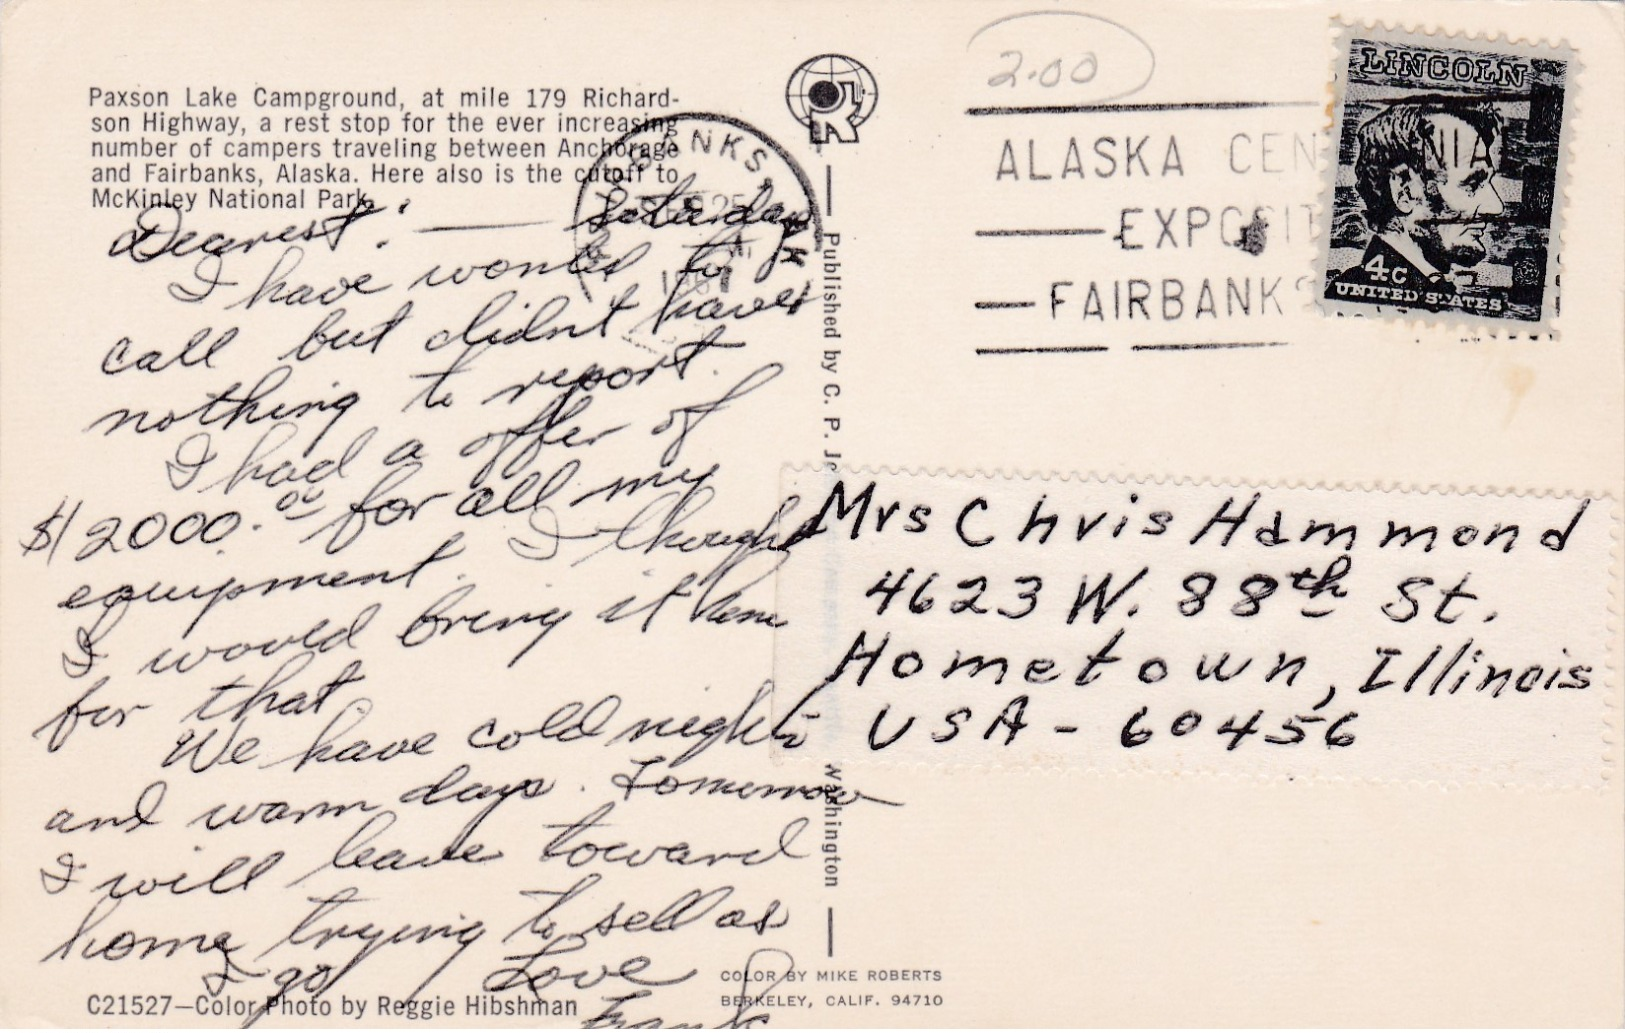 Paxson Lake Campground, at mile 179 Richard-
son Highway, a rest stop for the ever increasing
number of campers traveling between Anchorage
and Fairbanks, Alaska. Here also is the cutoff to
McKinley National Park.
Dearest: — Saturday
I have wonted to
call but didnt have
nothing to report.
I had a offer of
$12000.00 for all my
equipment. I thought
I would bring it home
for that.
We have cold nights
and warm days. Tomorrow
I will leave toward
home trying to sell as
I go Love
Frank
C21527—Color Photo by Reggie Hibshman
Published by C. P. Jo
Washington
COLOR BY MIKE ROBERTS
BERKELEY, CALIF. 94710
2.00
NKS,
ALASKA CEN NIA
EXPOSIT
FAIRBANKS
LINCOLN
4c
UNITED STATES
Mrs Chris Hammond
4623 W. 88th St.
Hometown, Illinois
USA - 60456